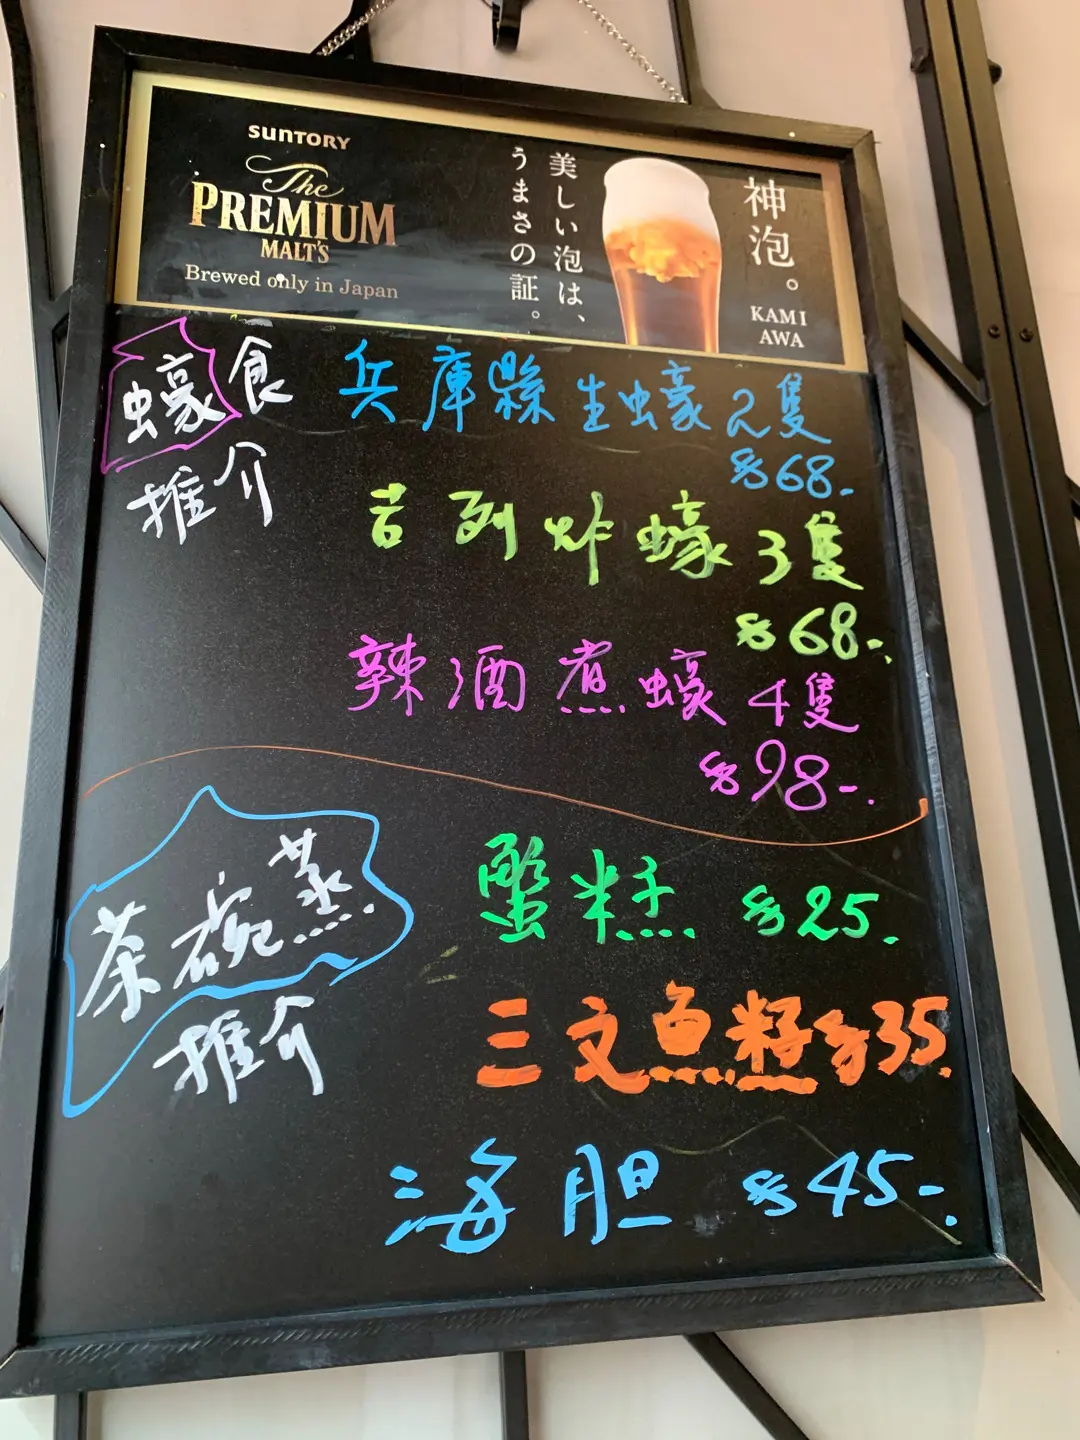 SUNTORY
The
PREMIUM
MALT'S
Brewed only in Japan
美しい泡は、
うまさの証。
神泡。
KAMI
AWA
蠔食
推介
兵庫縣生蠔2隻
$68-
吉列炸蠔3隻
$68-.
辣酒煮蠔4隻
$98-.
茶碗蒸
推介
蟹籽 $25.
三文魚籽 $35.
海胆 $45-.